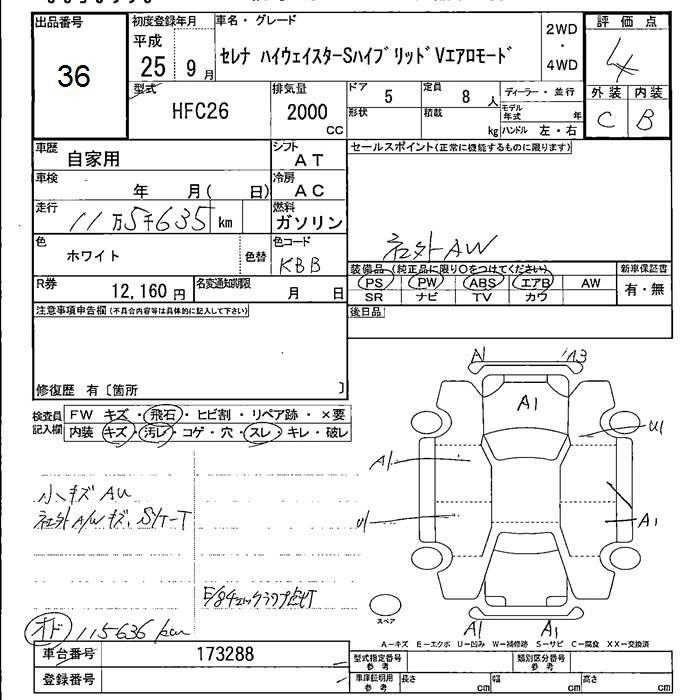 出品番号 36
初度登録年月 平成 25年 9月
車名・グレード
セレナ ハイウェイスターSハイブリッドVエアロモード
2WD・4WD
評価点 4
外装 C 内装 B
型式 HFC26
排気量 2000 CC
ドア 5
定員 8 人
形状
積載 kg
ディーラー・並行
モデル年式 年
ハンドル 左・右
車歴 自家用
シフト AT
車検 年 月( 日)
冷房 AC
走行 11万5千635 km
燃料 ガソリン
色 ホワイト 色替
色コード KBB
R券 12,160 円
名変通知期限 月 日
セールスポイント(正常に機能するものに限ります)
社外AW
装備品(純正品に限り○をつけてください)
PS PW ABS エアB AW
SR ナビ TV カワ
新車保証書 有・無
後日品
注意事項申告欄(不具合内容等は具体的に記入して下さい)
修復歴 有〔箇所 〕
検査員記入欄
FW キズ・飛石・ヒビ割・リペア跡・×要
内装 キズ・汚レ・コゲ・穴・スレ・キレ・破レ
小キズAU
社外A/Wキズ、
E/gチェックランプ点灯
オド 115636 km
A1 A3
A1
U1
A1
U1
A1
A1 A1
スペア
A-キズ E-エクボ U-凹み W-補修跡 S-サビ C-腐食 XX-交換済
車台番号 173288
登録番号
型式指定番号 参考
類別区分番号 参考
車庫証明用 参考 長さ cm 幅 cm 高さ cm